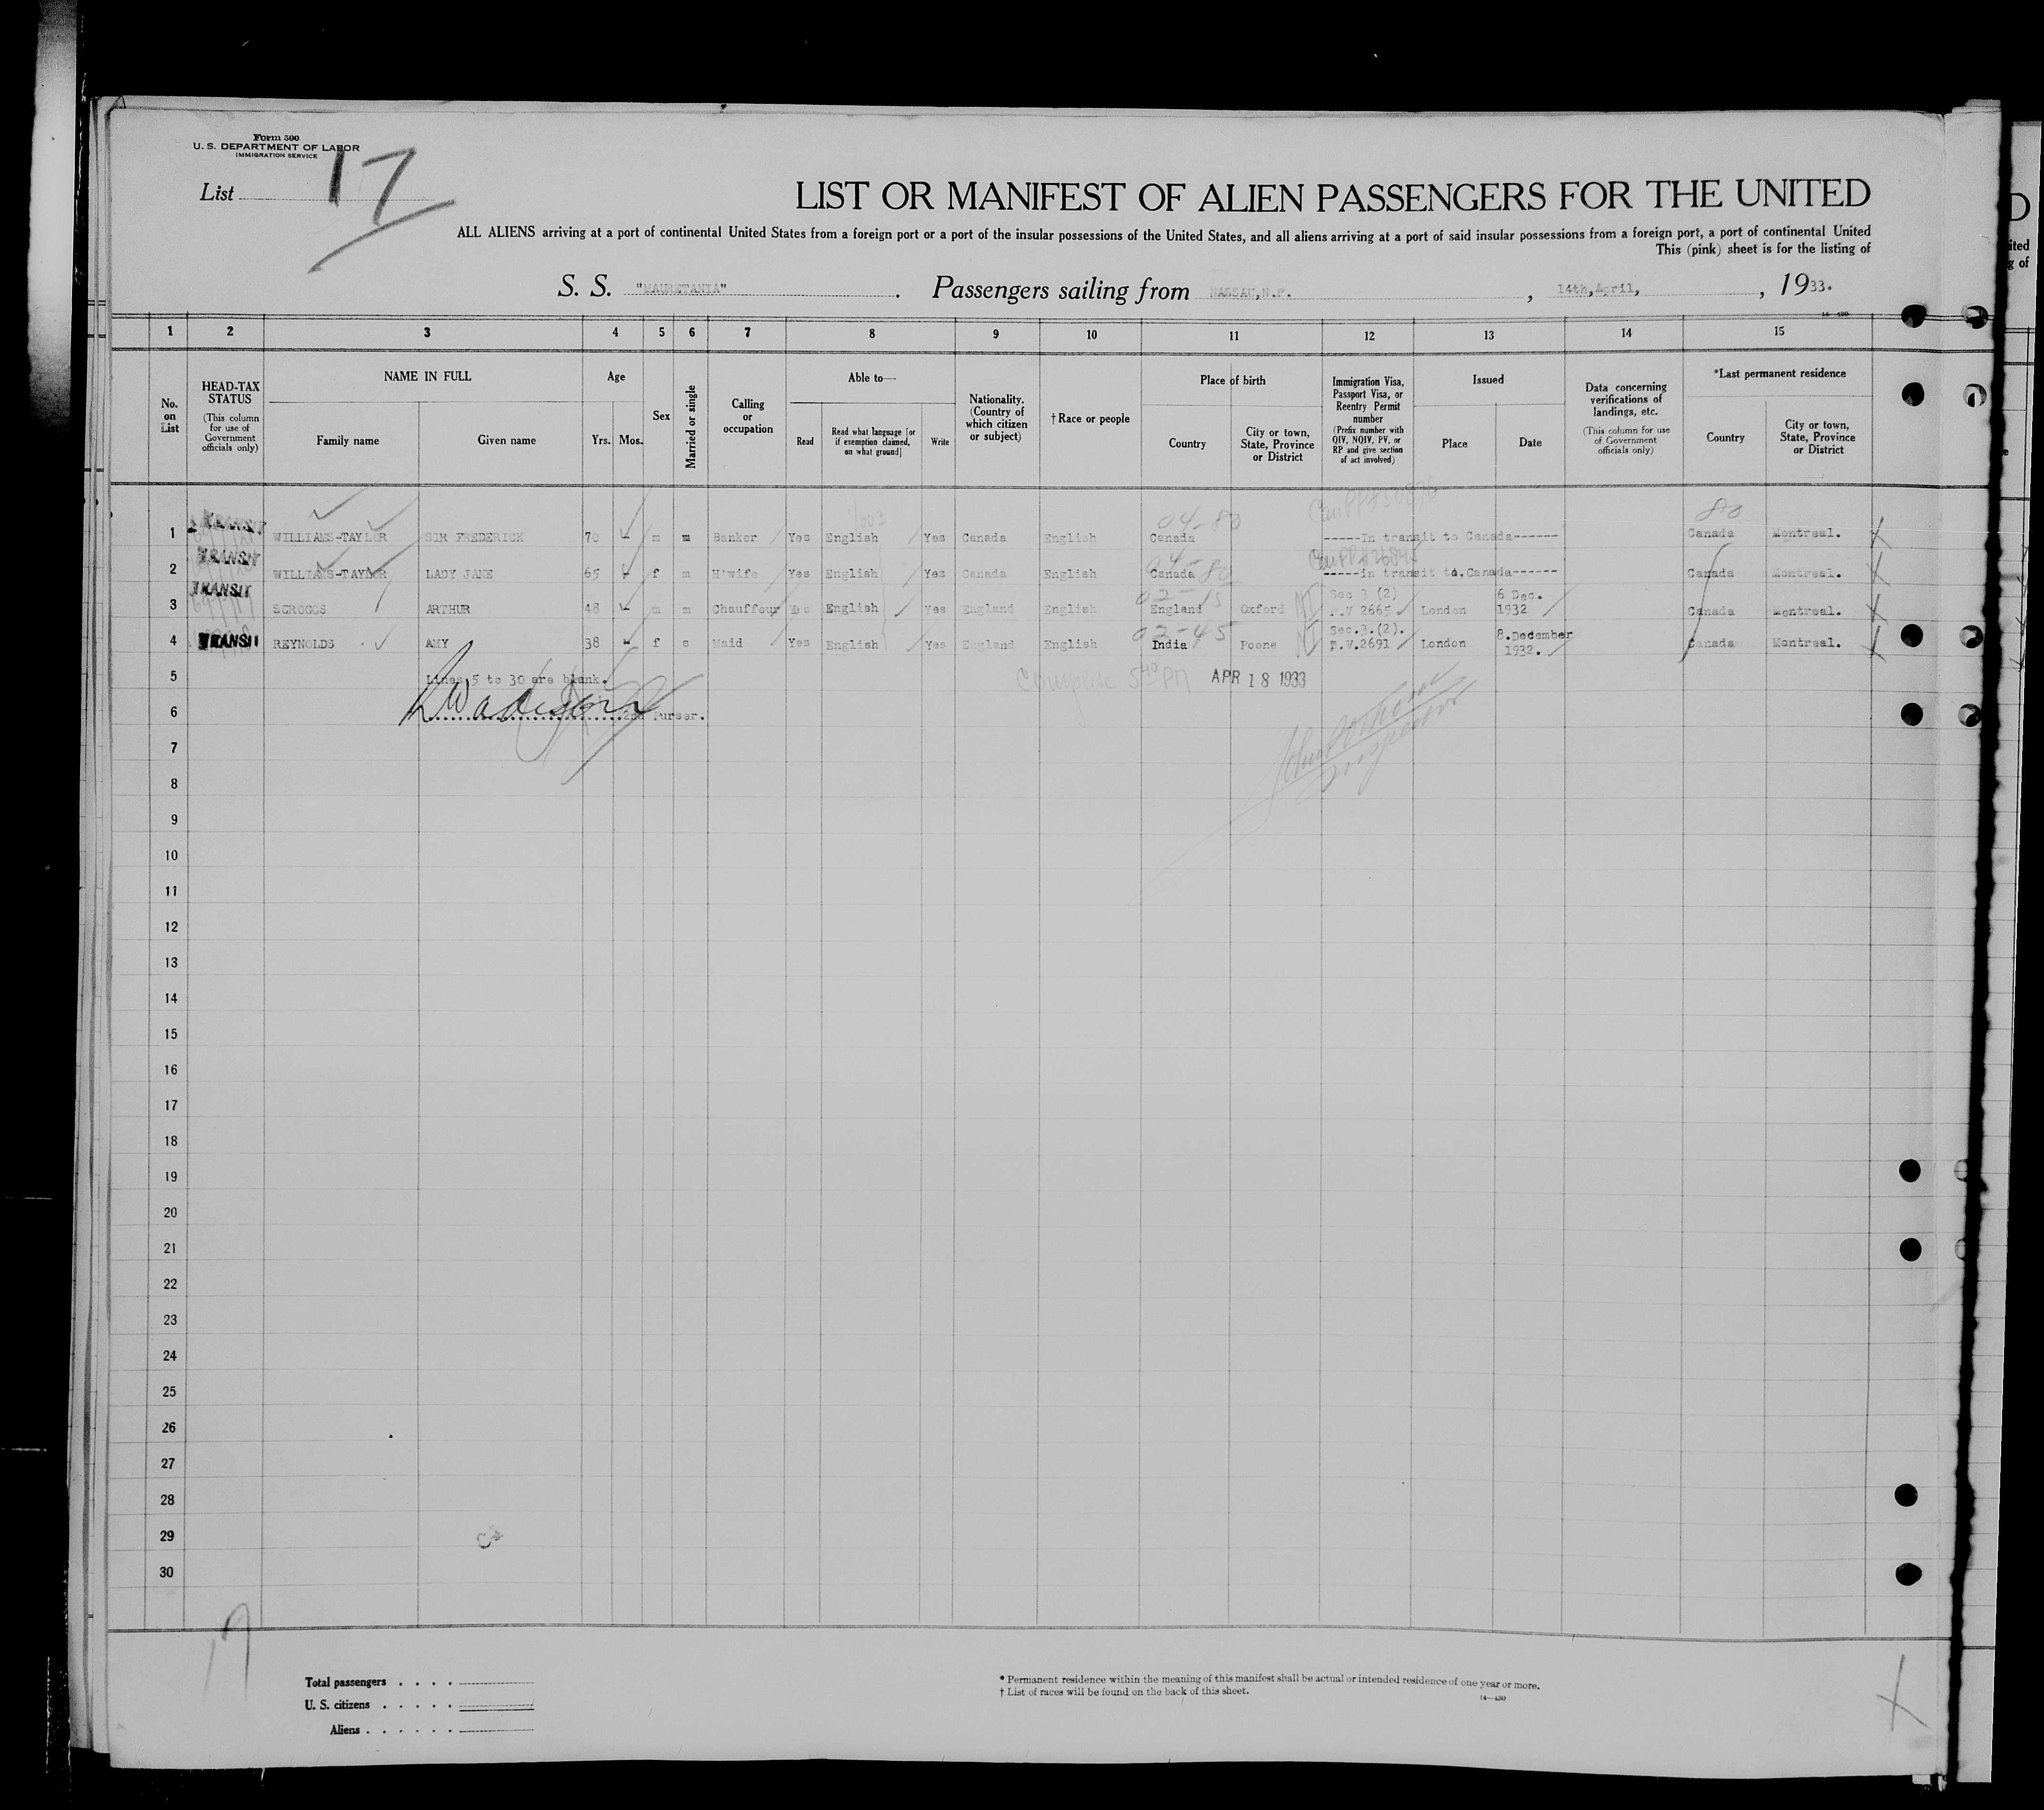 Form 500
U. S. DEPARTMENT OF LABOR
IMMIGRATION SERVICE
List 17
LIST OR MANIFEST OF ALIEN PASSENGERS FOR THE UNITED
ALL ALIENS arriving at a port of continental United States from a foreign port or a port of the insular possessions of the United States, and all aliens arriving at a port of said insular possessions from a foreign port, a port of continental United
This (pink) sheet is for the listing of
S. S. "MAURETANIA". Passengers sailing from NASSAU, N.P., 14th, April, , 1933.
1 2 3 4 5 6 7 8 9 10 11 12 13 14 15
No. on List
HEAD-TAX STATUS (This column for use of Government officials only)
NAME IN FULL Family name Given name
Age Yrs. Mos.
Sex
Married or single
Calling or occupation
Able to— Read Read what language [or if exemption claimed, on what ground] Write
Nationality. (Country of which citizen or subject)
† Race or people
Place of birth Country City or town, State, Province or District
Immigration Visa, Passport Visa, or Reentry Permit number (Prefix number with QIV, NQIV, PV, or RP and give section of act involved)
Issued Place Date
Data concerning verifications of landings, etc. (This column for use of Government officials only)
*Last permanent residence Country City or town, State, Province or District
04-80 80
1 TRANSIT WILLIAMS-TAYLOR SIR FREDERICK 70 m m Banker Yes English Yes Canada English Canada -----In transit to Canada------ Canada Montreal.
04-80
2 TRANSIT WILLIAMS-TAYLOR LADY JANE 65 f m H'wife Yes English Yes Canada English Canada -----in transit to.Canada------ Canada Montreal.
02-15 Sec 3 (2) 6 Dec.
3 TRANSIT SCROGGS ARTHUR 48 m m Chauffeur Yes English Yes England English England Oxford .V 2665 London 1932 Canada Montreal.
02-45 Sec.3.(2). 8.December
4 TRANSIT REYNOLDS AMY 38 f s Maid Yes English Yes England English India Poone P.V.2691 London 1932. Canada Montreal.
5 Lines 5 to 30 are blank. Complete APR 18 1933
6 2nd Purser.
Inspector
7
8
9
10
11
12
13
14
15
16
17
18
19
20
21
22
23
24
25
26
27
28
29
30
17
Total passengers . . . .
U. S. citizens . . . . .
Aliens . . . . . .
* Permanent residence within the meaning of this manifest shall be actual or intended residence of one year or more.
† List of races will be found on the back of this sheet.
14—430